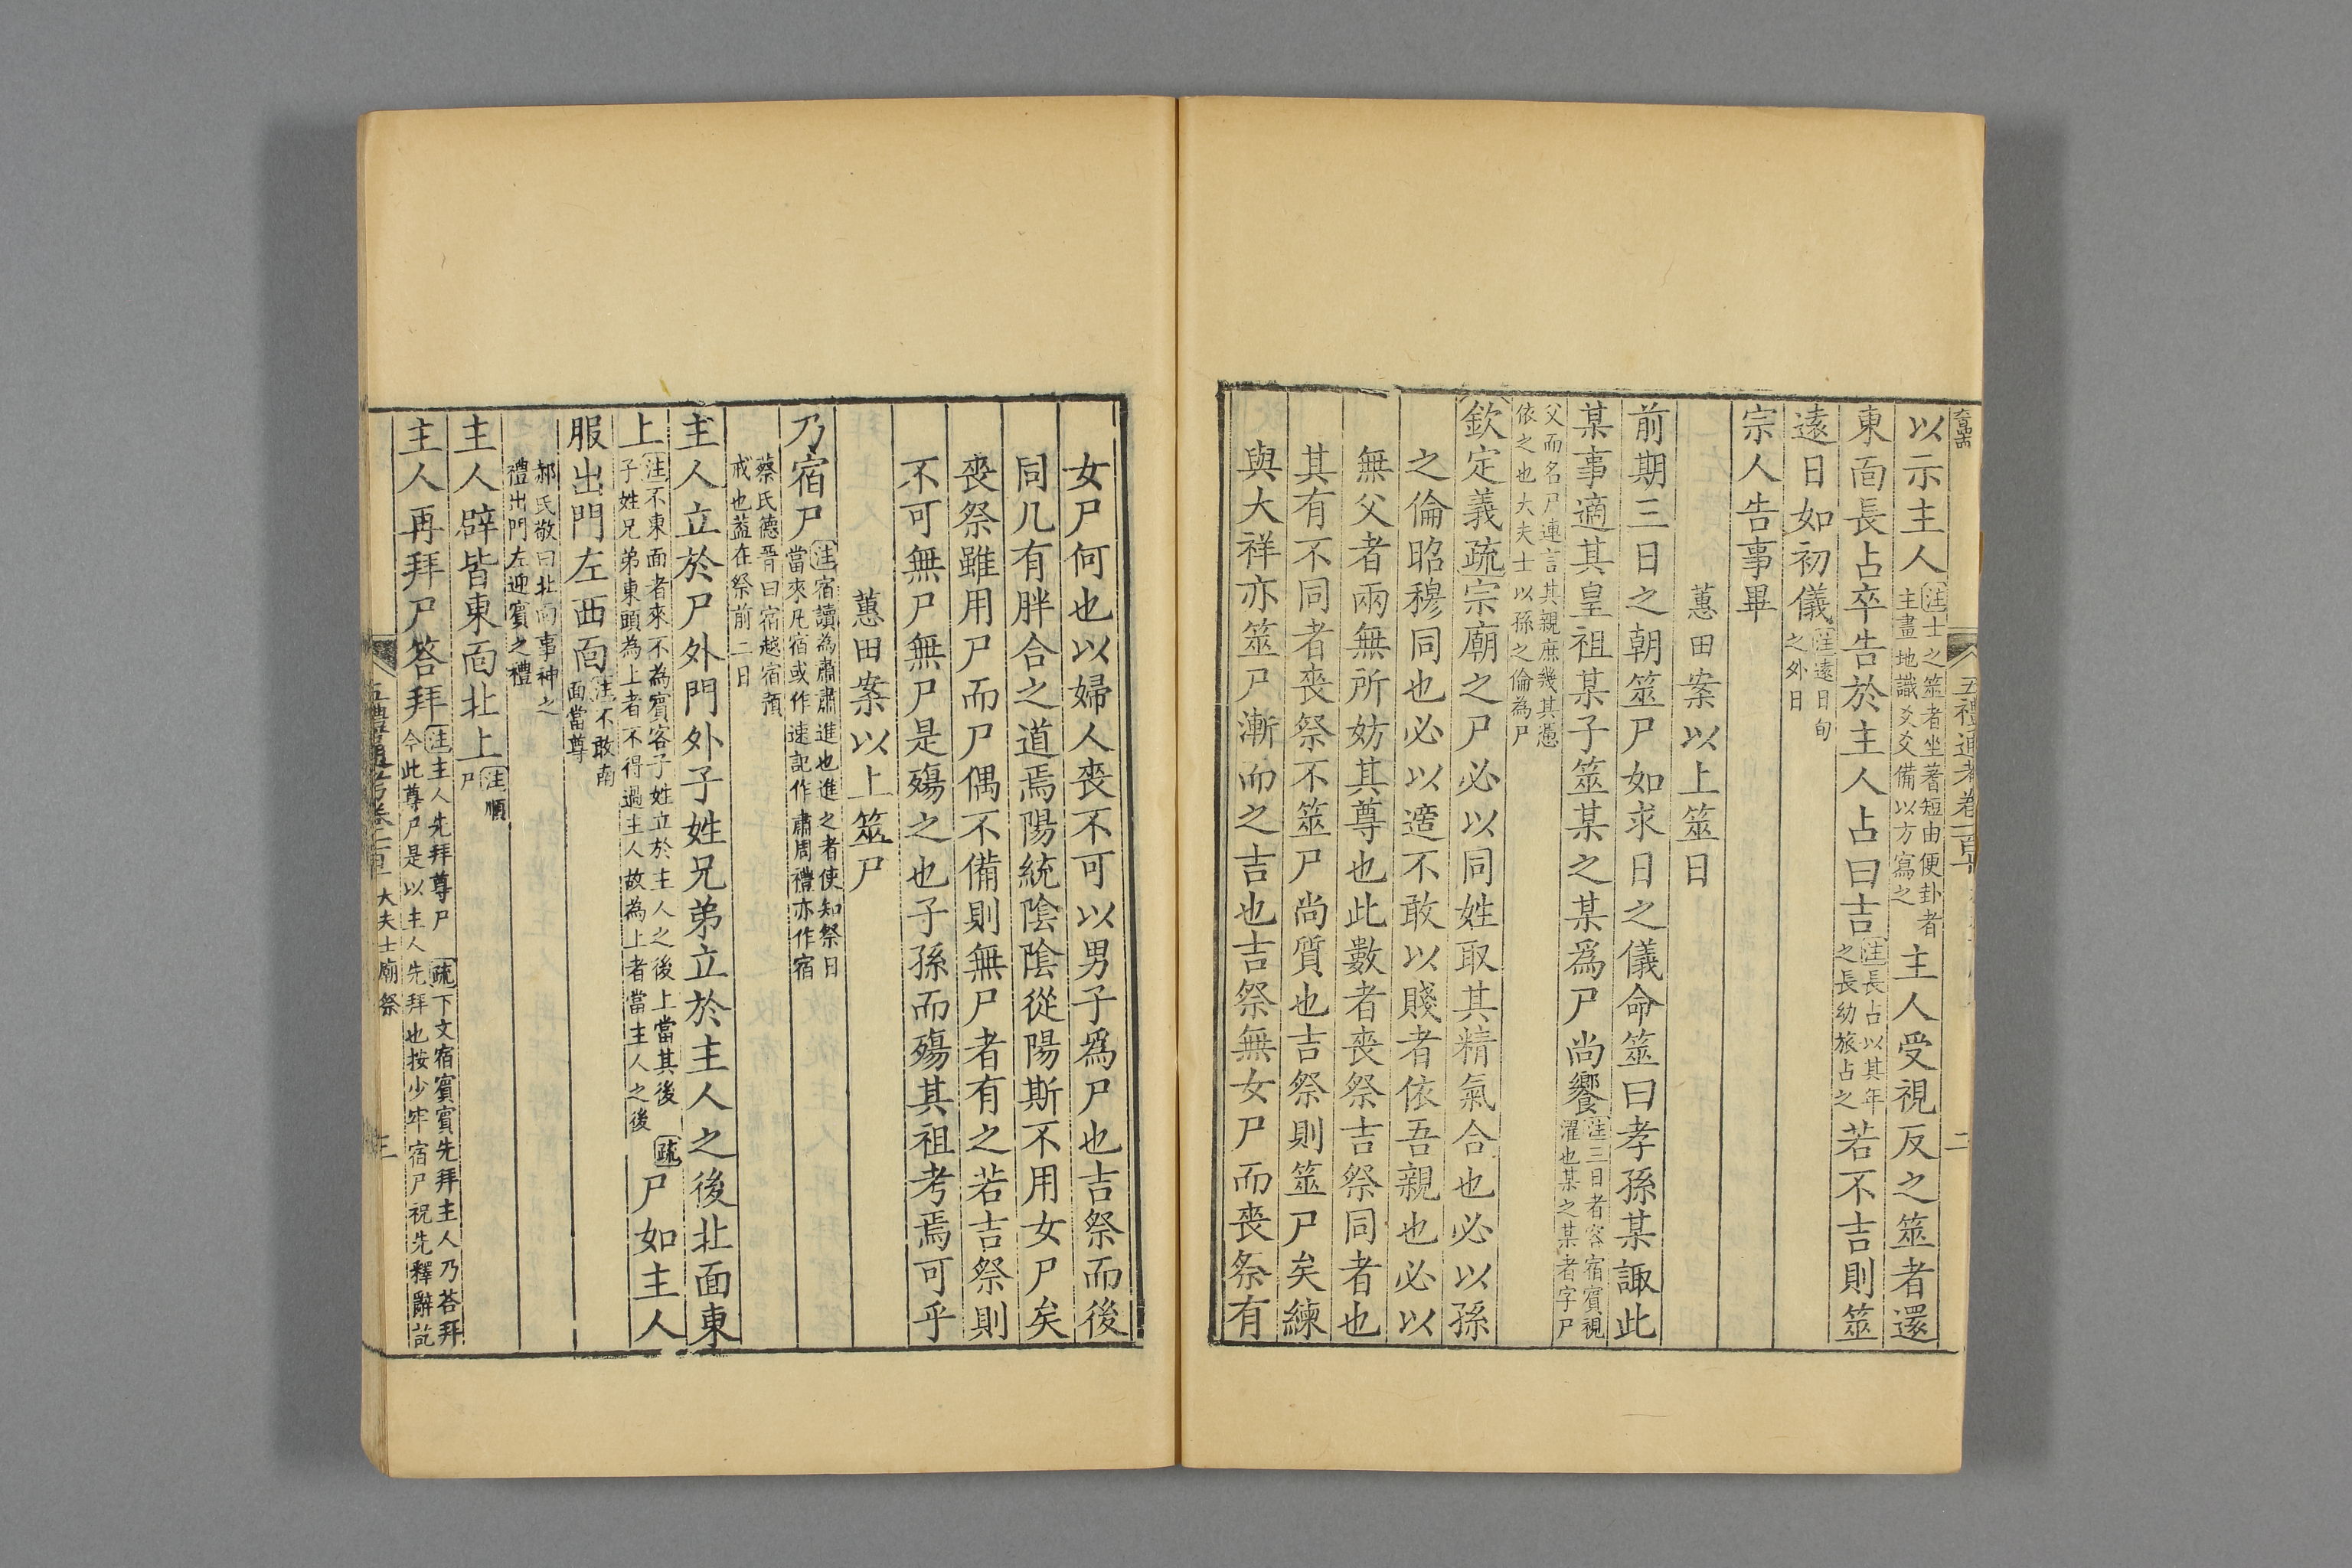 以示主人注士之筮者坐蓍短由便卦者主畫地識爻爻備以方寫之主人受視反之筮者還
東面長占卒告於主人占曰吉注長占以其年之長幼旅占之若不吉則筮
遠日如初儀注遠日旬之外日
宗人告事畢
蕙田案以上筮日
前期三日之朝筮尸如求日之儀命筮曰孝孫某諏此
某事適其皇祖某子筮某之某爲尸尚饗注三日者容宿賓視濯也某之某者字尸
父而名尸連言其親庶幾其馮依之也大夫士以孫之倫為尸
欽定義疏宗廟之尸必以同姓取其精氣合也必以孫
之倫昭穆同也必以適不敢以賤者依吾親也必以
無父者兩無所妨其尊也此數者喪祭吉祭同者也
其有不同者喪祭不筮尸尚質也吉祭則筮尸矣練
與大祥亦筮尸漸而之吉也吉祭無女尸而喪祭有
五禮通考卷一百
二
女尸何也以婦人喪不可以男子爲尸也吉祭而後
同几有胖合之道焉陽統陰陰從陽斯不用女尸矣
喪祭雖用尸而尸偶不備則無尸者有之若吉祭則
不可無尸無尸是殤之也子孫而殤其祖考焉可乎
蕙田案以上筮尸
乃宿尸注宿讀為肅肅進也進之者使知祭日當來凡宿或作速記作肅周禮亦作宿
蔡氏德晋曰宿越宿預戒也葢在祭前二日
主人立於尸外門外子姓兄弟立於主人之後北面東
上注不東面者來不為賓客子姓立於主人之後上當其後子姓兄弟東頭為上者不得過主人故為上者當主人之後疏尸如主人
服出門左西面注不敢南面當尊
郝氏敬曰北面事神之禮出門左迎賓之禮
主人辟皆東面北上注順尸
主人再拜尸答拜注主人先拜尊尸疏下文宿賓賓先拜主人乃荅拜今此尊尸是以主人先拜也按少牢宿尸祝先釋辭訖
大夫士廟祭
三